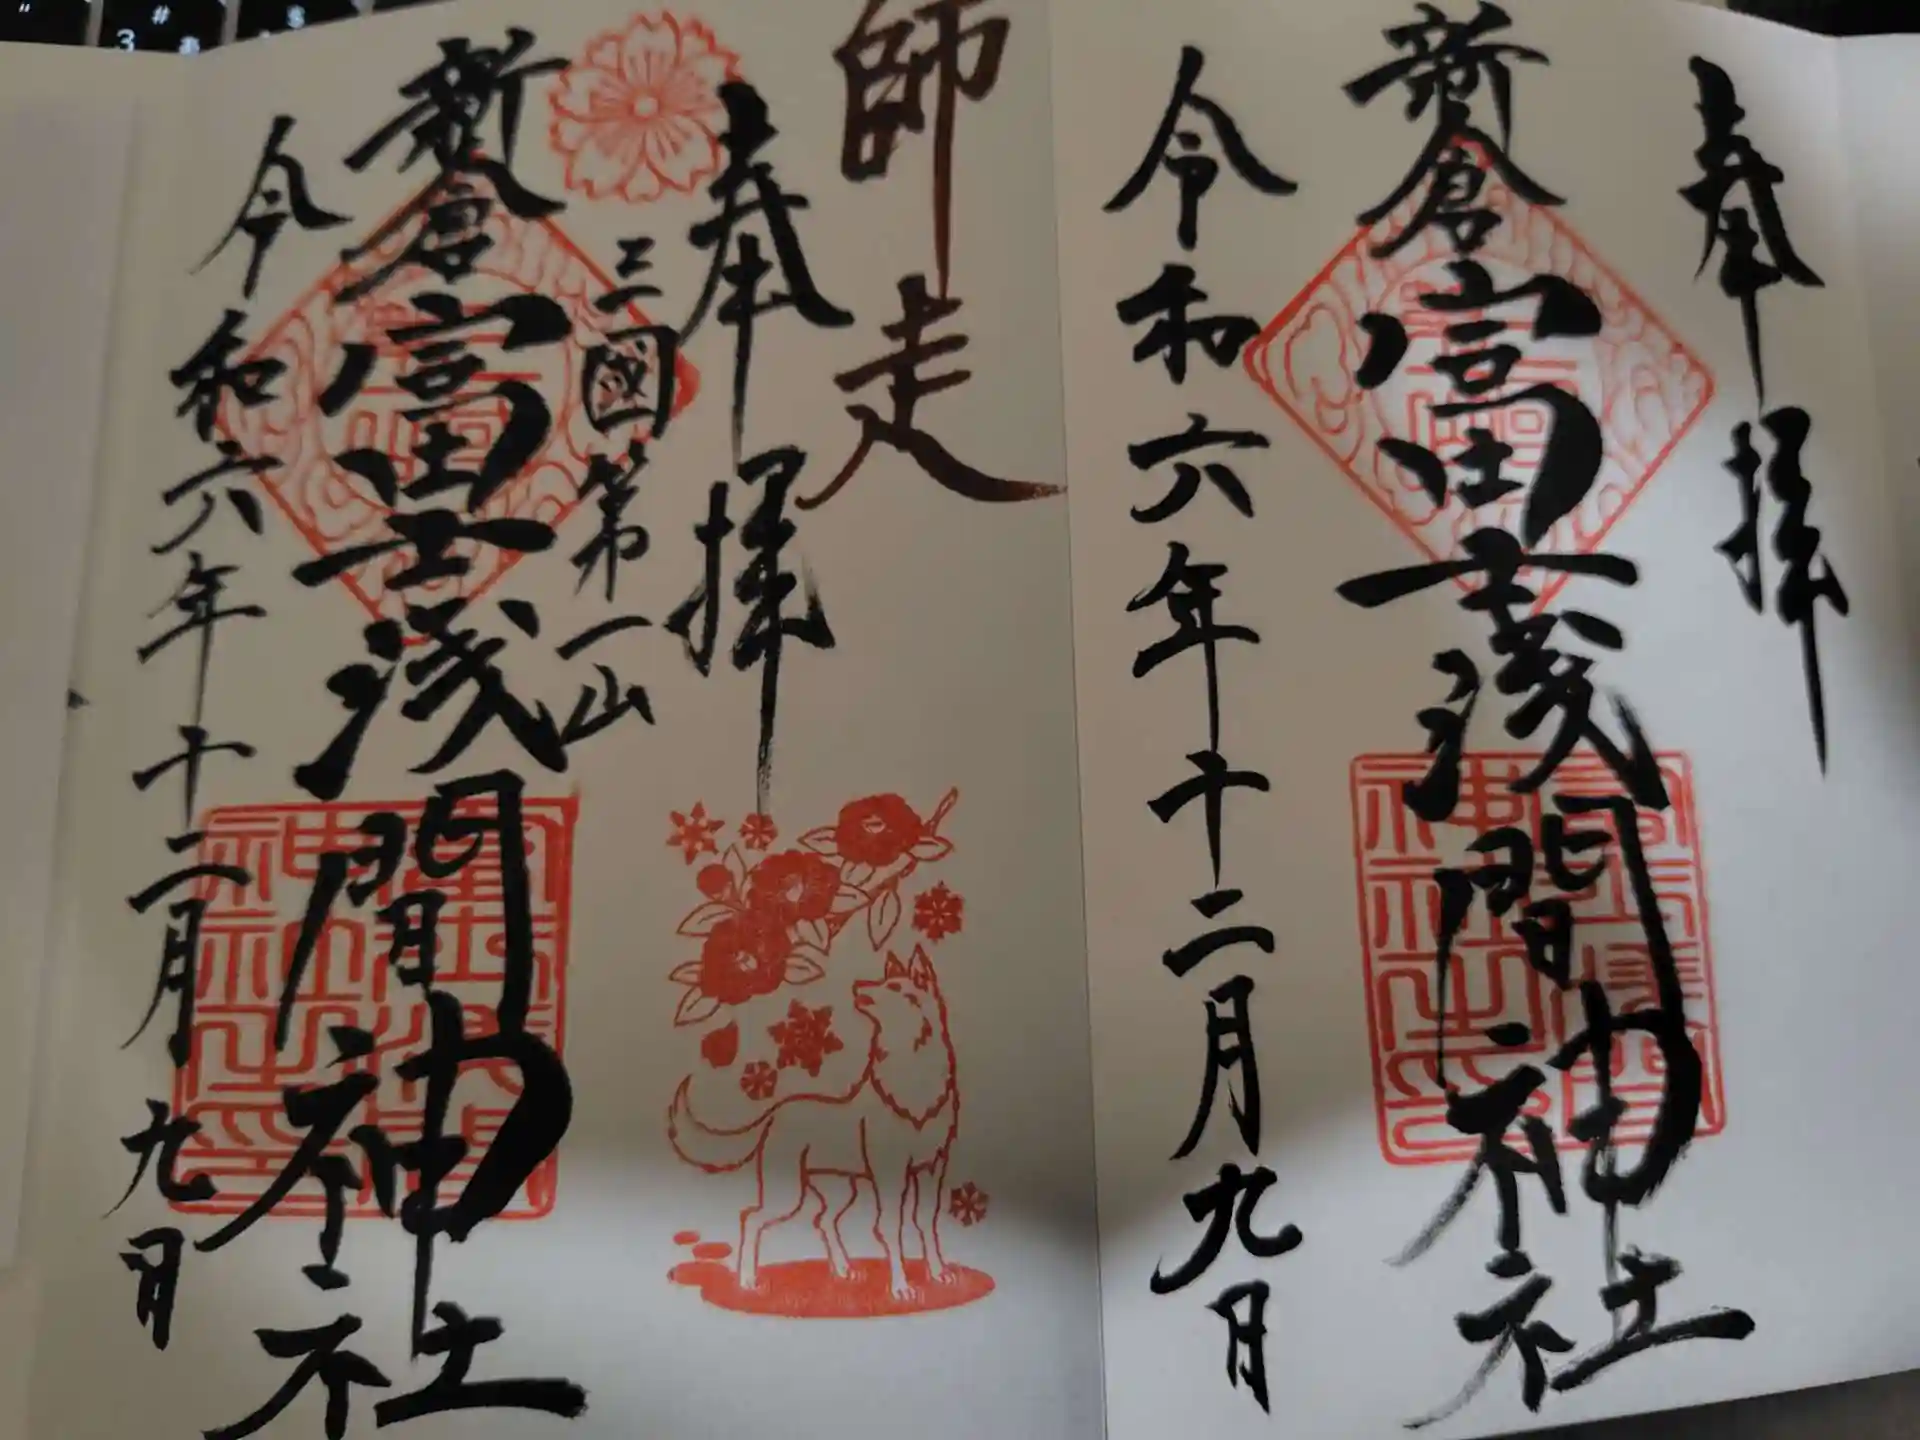 奉拝
新倉富士浅間神社
令和六年十二月九日
師走
奉拝
三國第一山
新倉富士浅間神社
令和六年十二月九日